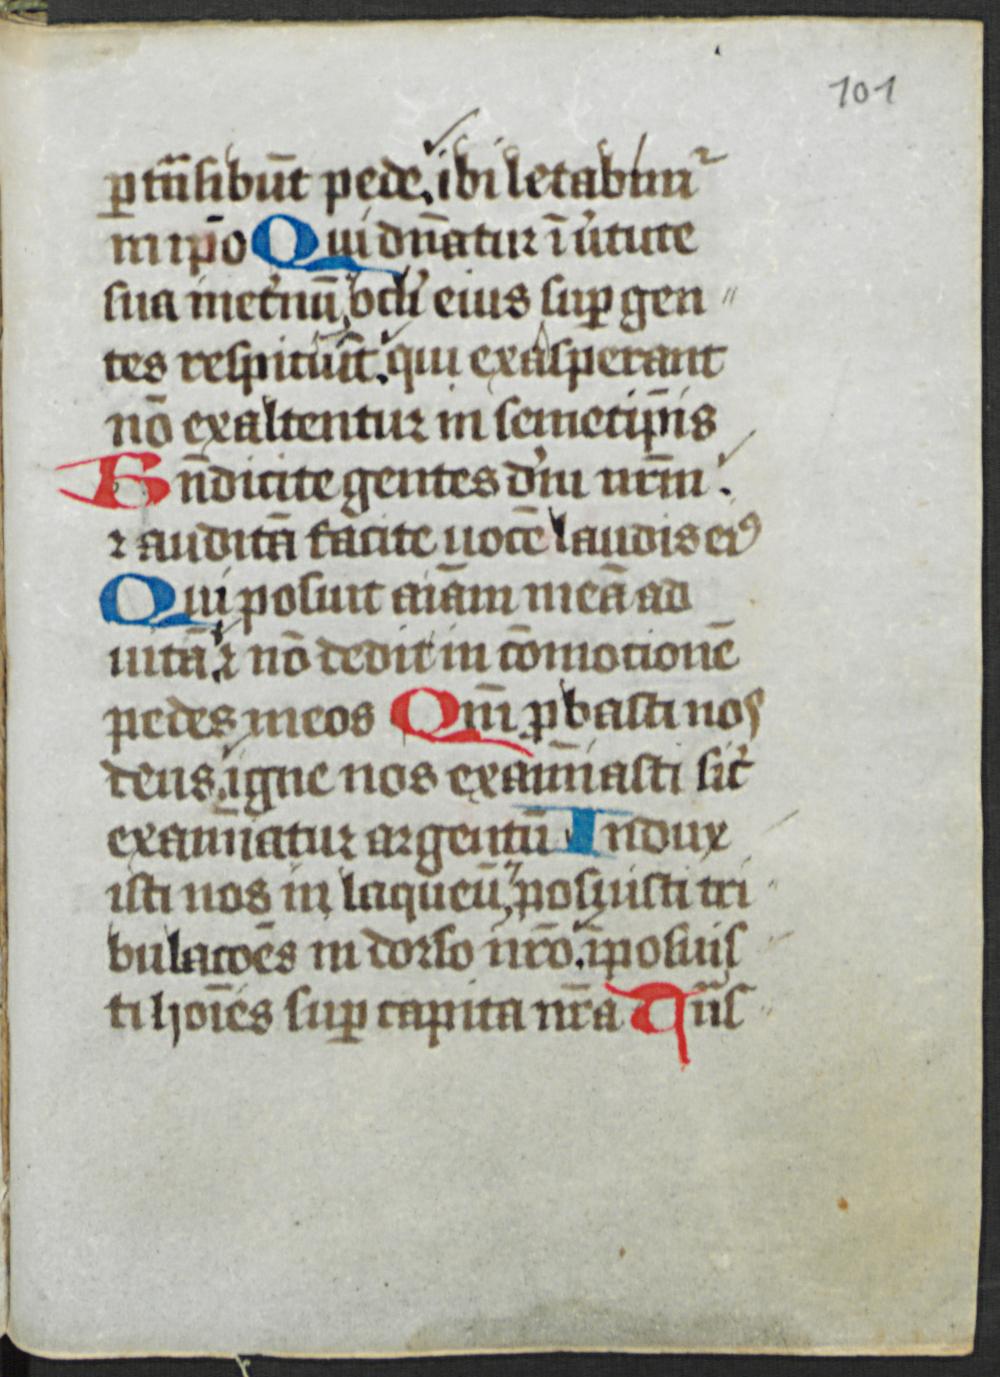 101
ꝑtrasibūt pede, ibi letabimᷣ
in ip̄o Qui dn̄atur ī ûtute
sua inet̉nū, oc̄li eius suꝑ gen〃
tes respiciūt. qui exasperant
nō exaltentur in semetip̄is
Bn̄dicite gentes dm̄ nrm̄.
⁊ auditā facite uocē laudis eiꝰ
Qui posuit aīam meā ad
uitā, ⁊ nō dedit in cōmotionē
pedes meos Qm̄ ꝓbasti nos
deus, igne nos examīasti sic̄
examīatur argentū Indux
isti nos in laqueū, posuisti tri
bulacōes in dorso nr̄o. īposuis
ti hoīes suꝑ capita nr̄a Tn̄s